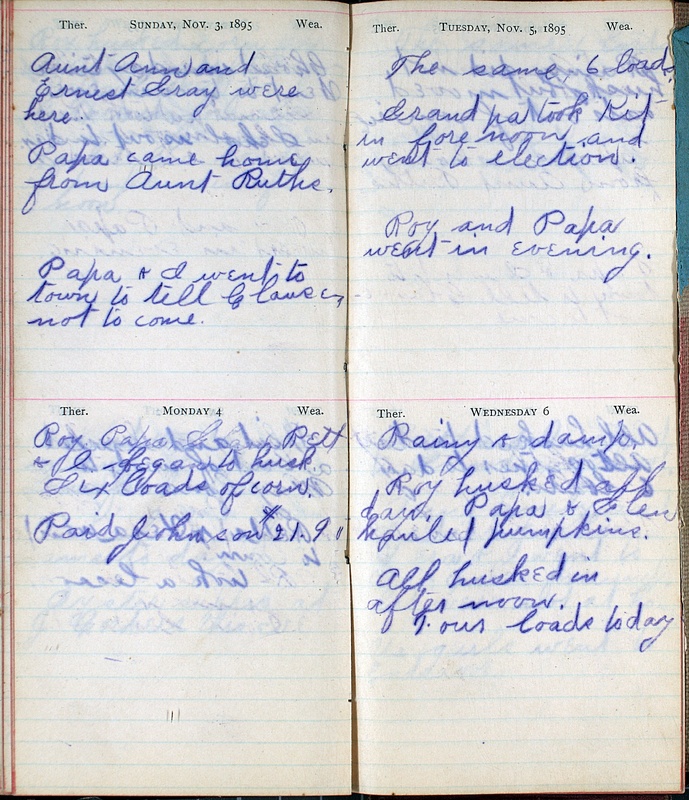 Ther. Sunday, Nov. 3, 1895 Wea.
Aunt Ann and
Ernest Gray were
here.
Papa came home
from Aunt Ruths.
Papa & I went to
town to tell Clawsen
not to come.
Ther. Monday 4 Wea.
Roy Papa Rett
& I began to husk.
Six loads of corn.
Paid Johnson $21.9
Ther. Tuesday, Nov. 5, 1895 Wea.
The same, 6 loads
Grandpa took Kit
in fore noon and
went to election.
Roy and Papa
went in evening.
Ther. Wednesday 6 Wea.
Rainy & damp.
Roy husked all
day. Papa & Glen
hauled pumpkins.
All husked in
after noon.
Four loads today